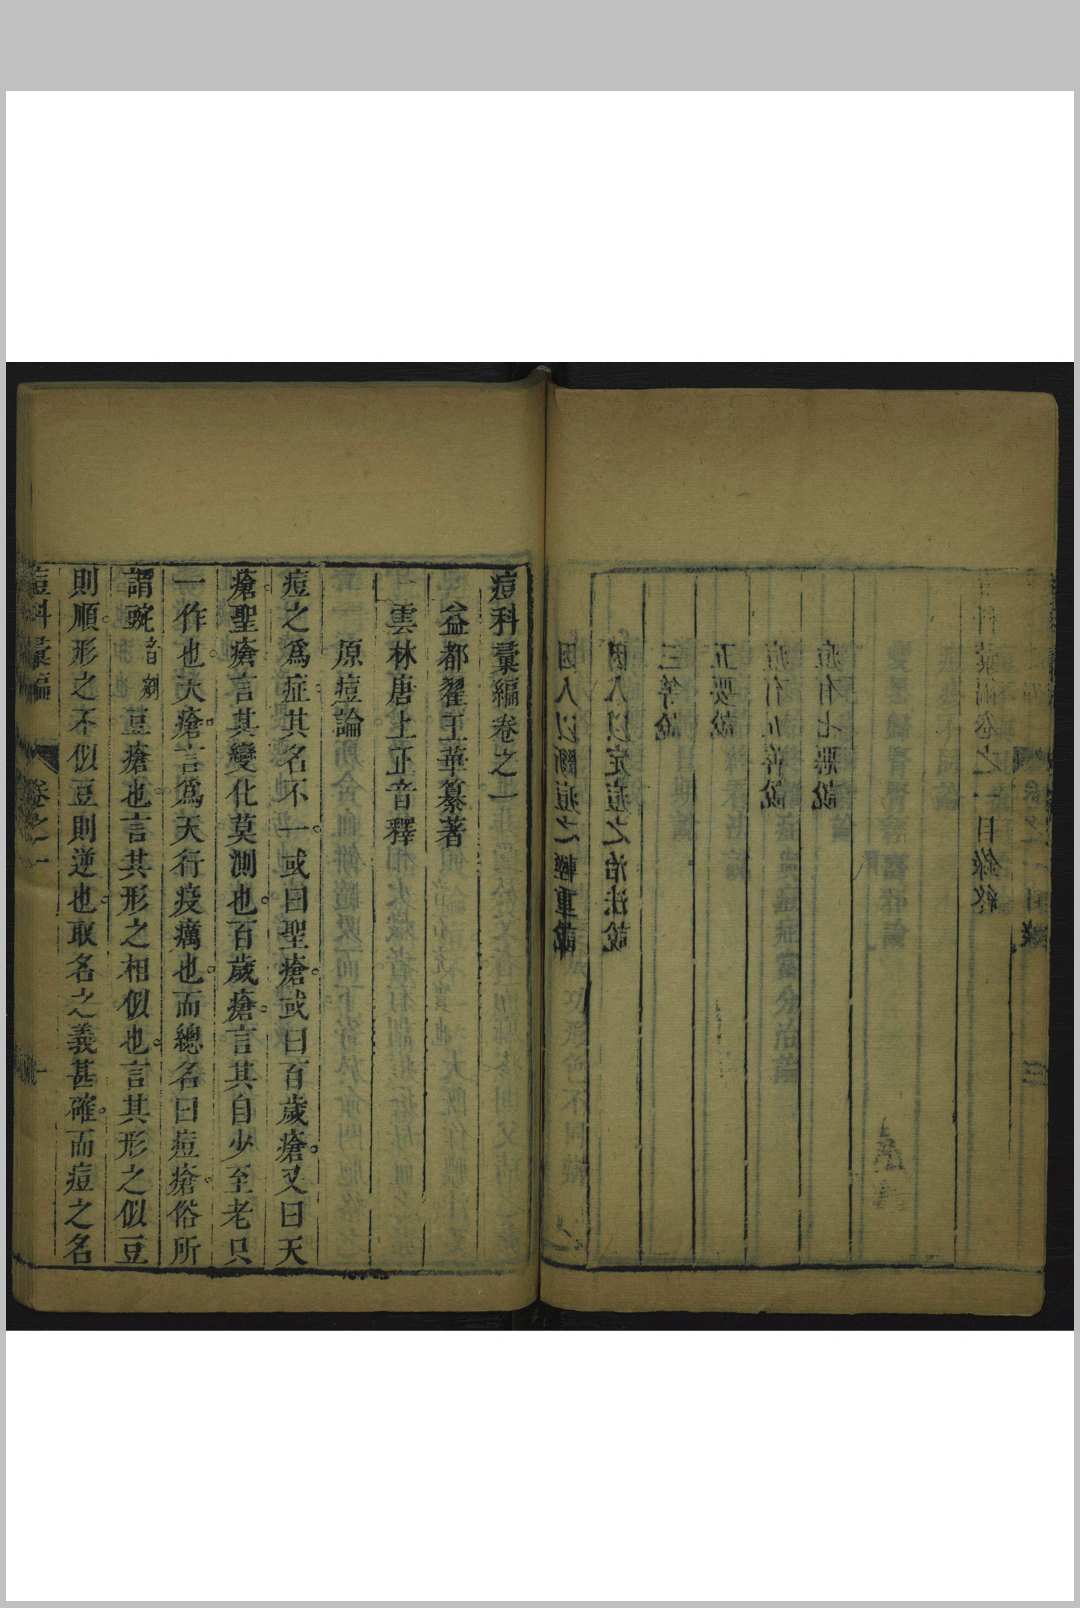 因人以斷痘之輕重說
因人以定痘之治法說
三等說
五要說
痘有五善說
痘有七惡說
痘科彙編卷之一目錄終
痘科彙編卷之一
益都翟玉華纂著
雲林唐上正音釋
原痘論
痘之爲症其名不一或曰聖瘡或曰百歲瘡又曰天
瘡聖瘡言其變化莫測也百歲瘡言其自少至老只
一作也天瘡言爲天行疫癘也而總名曰痘瘡俗所
謂豌音剜荳瘡也言其形之相似也言其形之似豆
則順形之不似豆則逆也取名之義甚確而痘之名
痘科彙編 卷之一 一